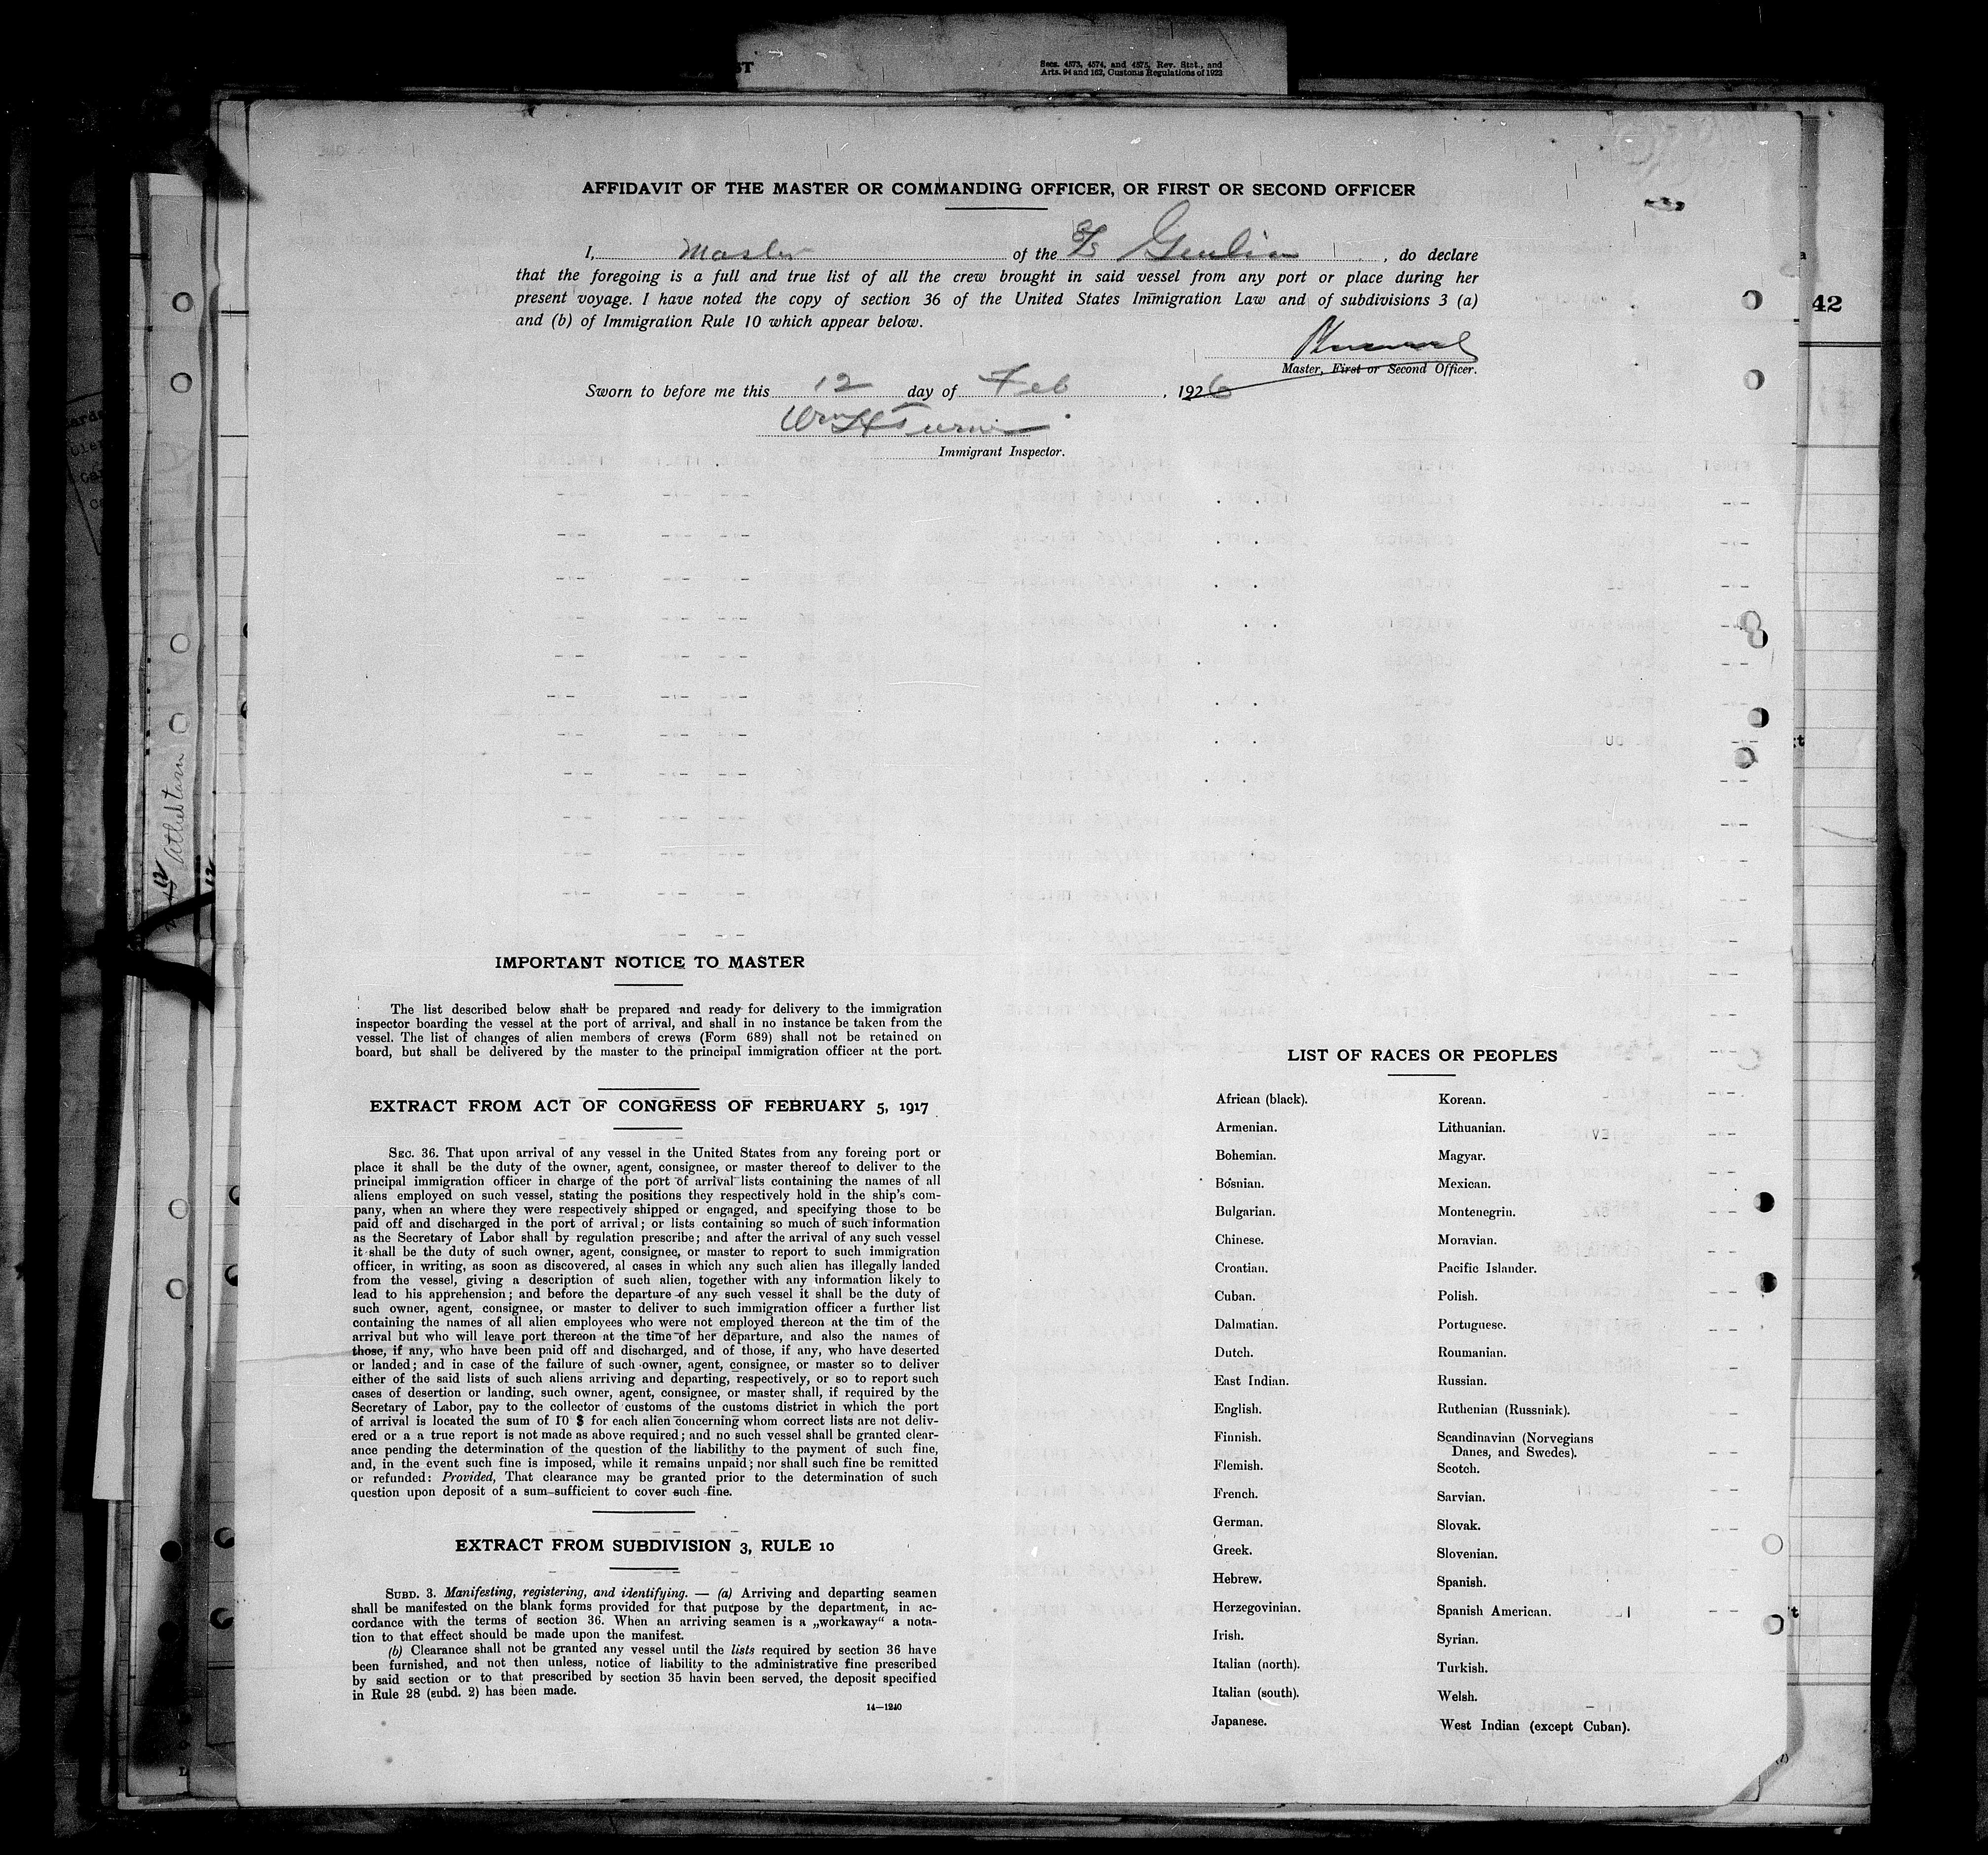 ST
Secs. 4573, 4574, and 4575, Rev. Stat., and
Arts. 94 and 162, Customs Regulations of 1922
42
AFFIDAVIT OF THE MASTER OR COMMANDING OFFICER, OR FIRST OR SECOND OFFICER
I, Master of the S/S Giulia, do declare
that the foregoing is a full and true list of all the crew brought in said vessel from any port or place during her
present voyage. I have noted the copy of section 36 of the United States Immigration Law and of subdivisions 3 (a)
and (b) of Immigration Rule 10 which appear below.
Master, First or Second Officer.
Sworn to before me this 12 day of Feb, 1926
Wm H Turner
Immigrant Inspector.
Athelstarn
IMPORTANT NOTICE TO MASTER
The list described below shall be prepared and ready for delivery to the immigration
inspector boarding the vessel at the port of arrival, and shall in no instance be taken from the
vessel. The list of changes of alien members of crews (Form 689) shall not be retained on
board, but shall be delivered by the master to the principal immigration officer at the port.
EXTRACT FROM ACT OF CONGRESS OF FEBRUARY 5, 1917
SEC. 36. That upon arrival of any vessel in the United States from any foreing port or
place it shall be the duty of the owner, agent, consignee, or master thereof to deliver to the
principal immigration officer in charge of the port of arrival lists containing the names of all
aliens employed on such vessel, stating the positions they respectively hold in the ship's com-
pany, when an where they were respectively shipped or engaged, and specifying those to be
paid off and discharged in the port of arrival; or lists containing so much of such information
as the Secretary of Labor shall by regulation prescribe; and after the arrival of any such vessel
it shall be the duty of such owner, agent, consignee, or master to report to such immigration
officer, in writing, as soon as discovered, al cases in which any such alien has illegally landed
from the vessel, giving a description of such alien, together with any information likely to
lead to his apprehension; and before the departure of any such vessel it shall be the duty of
such owner, agent, consignee, or master to deliver to such immigration officer a further list
containing the names of all alien employees who were not employed thereon at the tim of the
arrival but who will leave port thereon at the time of her departure, and also the names of
those, if any, who have been paid off and discharged, and of those, if any, who have deserted
or landed; and in case of the failure of such owner, agent, consignee, or master so to deliver
either of the said lists of such aliens arriving and departing, respectively, or so to report such
cases of desertion or landing, such owner, agent, consignee, or master shall, if required by the
Secretary of Labor, pay to the collector of customs of the customs district in which the port
of arrival is located the sum of 10 $ for each alien concerning whom correct lists are not deliv-
ered or a a true report is not made as above required; and no such vessel shall be granted clear-
ance pending the determination of the question of the liabilithy to the payment of such fine,
and, in the event such fine is imposed, while it remains unpaid; nor shall such fine be remitted
or refunded: Provided, That clearance may be granted prior to the determination of such
question upon deposit of a sum sufficient to cover such fine.
EXTRACT FROM SUBDIVISION 3, RULE 10
SUBD. 3. Manifesting, registering, and identifying. — (a) Arriving and departing seamen
shall be manifested on the blank forms provided for that purpose by the department, in ac-
cordance with the terms of section 36. When an arriving seamen is a „workaway“ a nota-
tion to that effect should be made upon the manifest.
(b) Clearance shall not be granted any vessel until the lists required by section 36 have
been furnished, and not then unless, notice of liability to the administrative fine prescribed
by said section or to that prescribed by section 35 havin been served, the deposit specified
in Rule 28 (subd. 2) has been made.
14—1240
LIST OF RACES OR PEOPLES
African (black).
Armenian.
Bohemian.
Bosnian.
Bulgarian.
Chinese.
Croatian.
Cuban.
Dalmatian.
Dutch.
East Indian.
English.
Finnish.
Flemish.
French.
German.
Greek.
Hebrew.
Herzegovinian.
Irish.
Italian (north).
Italian (south).
Japanese.
Korean.
Lithuanian.
Magyar.
Mexican.
Montenegrin.
Moravian.
Pacific Islander.
Polish.
Portuguese.
Roumanian.
Russian.
Ruthenian (Russniak).
Scandinavian (Norvegians
Danes, and Swedes).
Scotch.
Sarvian.
Slovak.
Slovenian.
Spanish.
Spanish American.
Syrian.
Turkish.
Welsh.
West Indian (except Cuban).